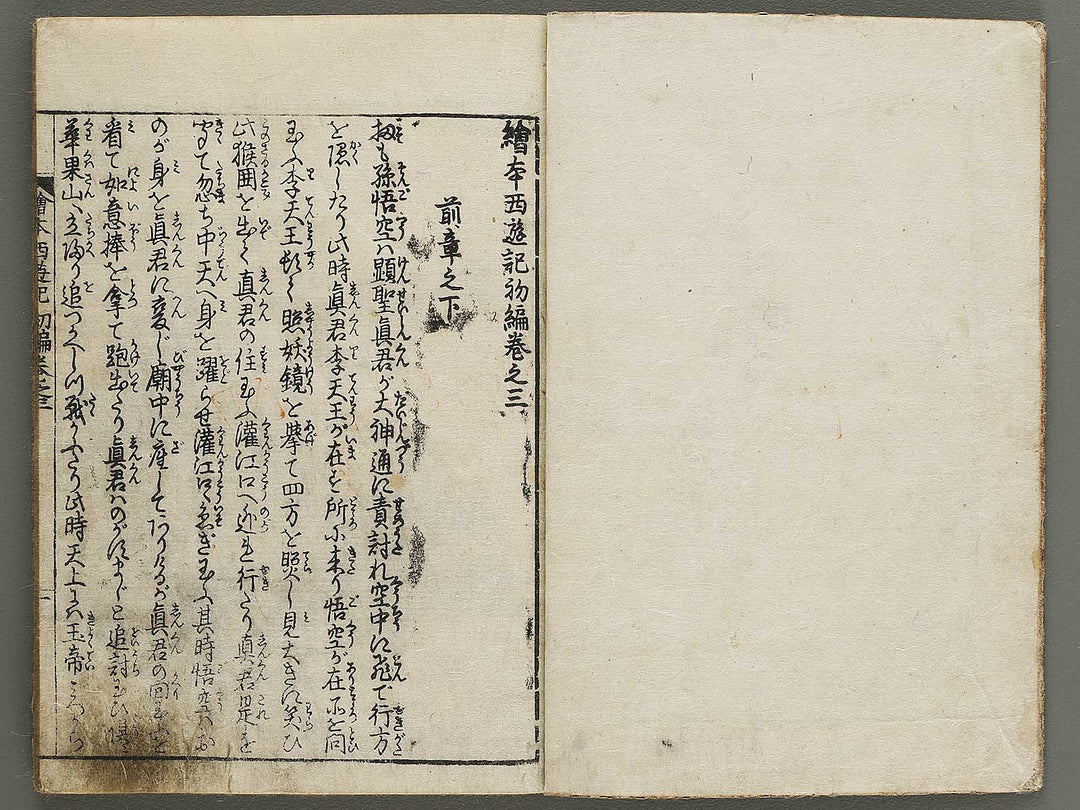 繪本西遊記初編巻之三
前章之下
扨も孫悟空ハ顕聖眞君が大神通に責討れ空中に飛で行方
を隠したり此時眞君李天王が在す所に来り悟空が在所を問
玉ふ李天王頓て照妖鏡を挙て四方を照し見大きに笑ひ
此猴囲を出て真君の住玉ふ灌江口へ迯れ行たり真君是を
きて忽ち中天へ身を躍らせ灌江口へ急ぎ玉ふ其時悟空ハお
のが身を眞君に変じ廟中に座して眞君の
看て如意棒を拿て跑出たり眞君ハのがさじと追討
華果山へ立帰り追つかへしつ戦ふたり此時天上にハ玉帝
繪本西遊記 初編巻之三